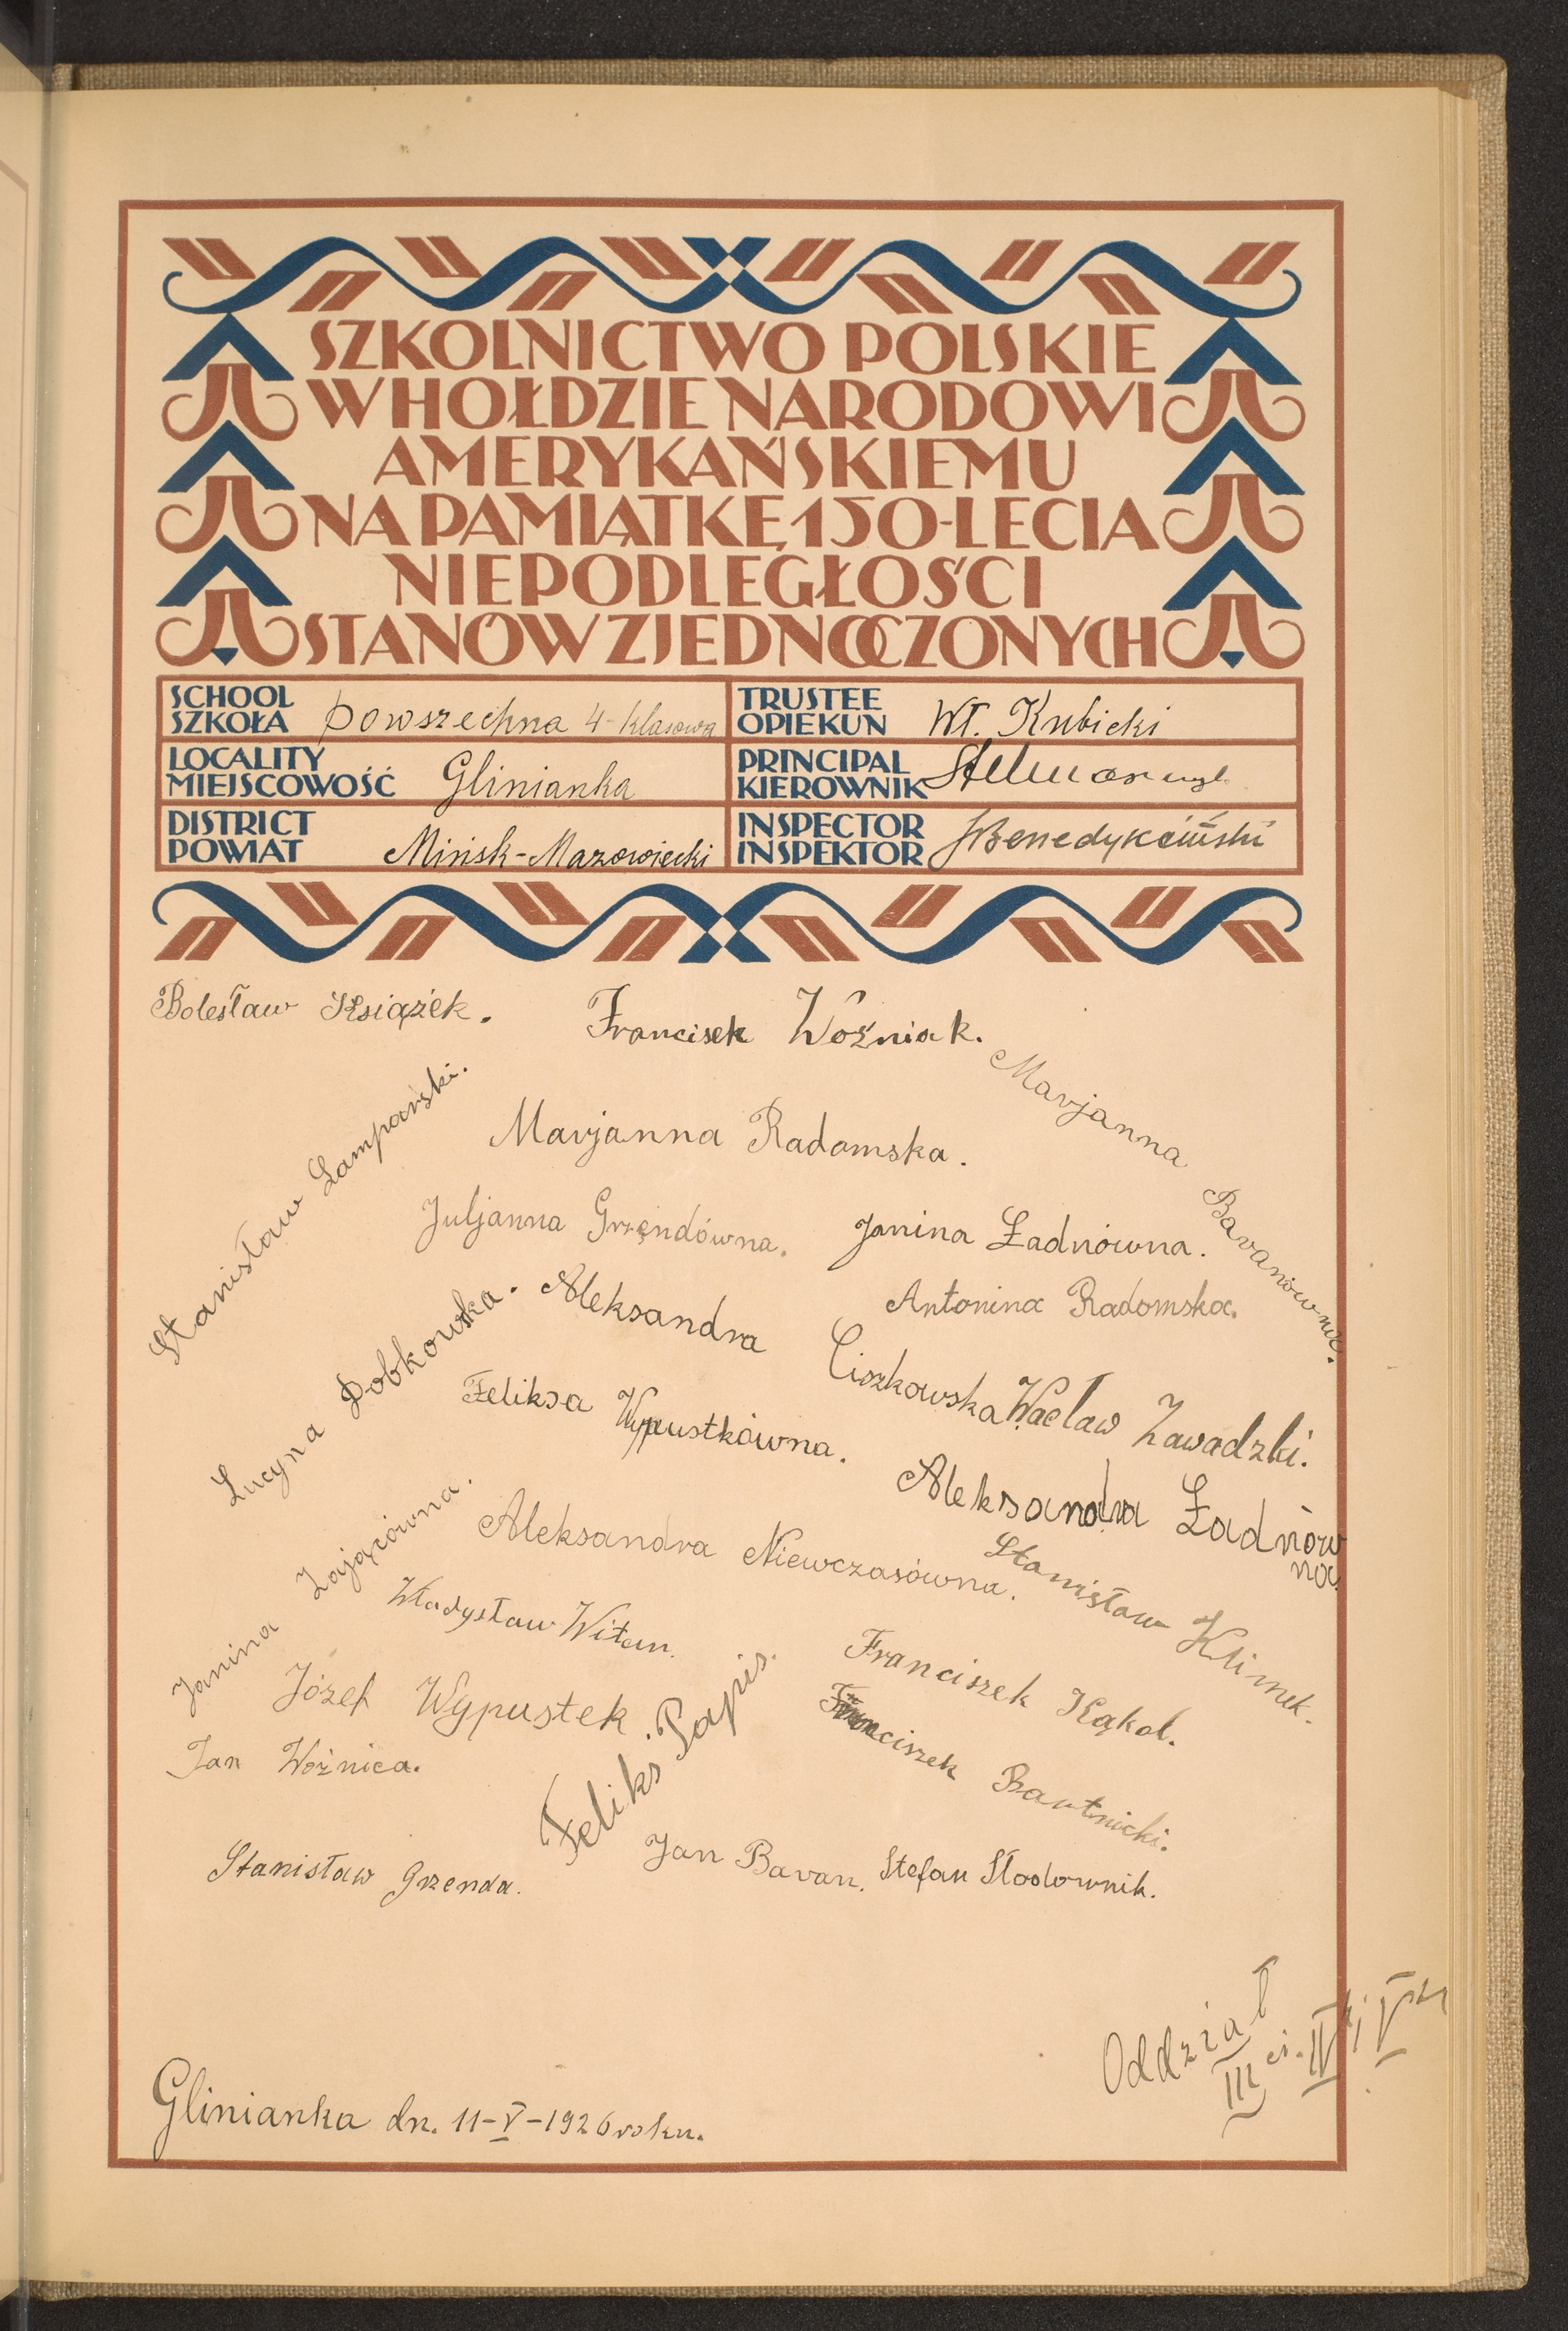 SZKOLNICTWO POLSKIE
W HOŁDZIE NARODOWI
AMERYKAŃSKIEMU
NA PAMIĄTKĘ 150-LECIA
NIEPODLEGŁOŚCI
STANÓW ZJEDNOCZONYCH
SCHOOL
SZKOŁA powszechna 4-klasowa
TRUSTEE
OPIEKUN Wł. Kubicki
LOCALITY
MIEJSCOWOŚĆ Glinianka
PRINCIPAL
KIEROWNIK
DISTRICT
POWIAT Mińsk-Mazowiecki
INSPECTOR
INSPEKTOR
Bolesław Książek.
Francisek Woźniak.
Stanisław Lamparski.
Marjanna Baranówna.
Marjanna Radomska.
Juljanna Grzęndówna.
Janina Ładnówna.
Antonina Radomska.
Lucyna Bobkowska.
Aleksandra Ciszkowska
Wacław Zawadzki.
Feliksa Wypustkówna.
Aleksandra Ładnów
na
Janina Zającówna.
Aleksandra Niewczasówna.
Stanisław Klimek.
Władysław Witan.
Franciszek Kąkol.
Józef Wypustek.
Feliks Papis.
Franciszek Bartnicki.
Jan Woźnica.
Jan Baran.
Stefan Słodownik.
Stanisław Grzenda.
Oddział
III ci. IV ty i V ty
Glinianka dn. 11-V-1926 roku.